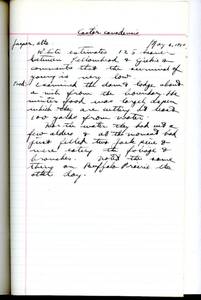 Castor canadensis
Jasper, Alta May 6, 1940
White estimates 125 beaver
between Yellowhead & Geikie &
comments that the survival of
young is very low.
Examined the dam & lodge about
a mile from the boundary. The
winter food was largely aspen
which they are cutting at least
100 yards from water.
Near the water they had cut a
few alders & at the moment had
just felled two jack pine &
were eating the foliage &
branches. Noted the same
thing on Buffalo Prairie the
other day.